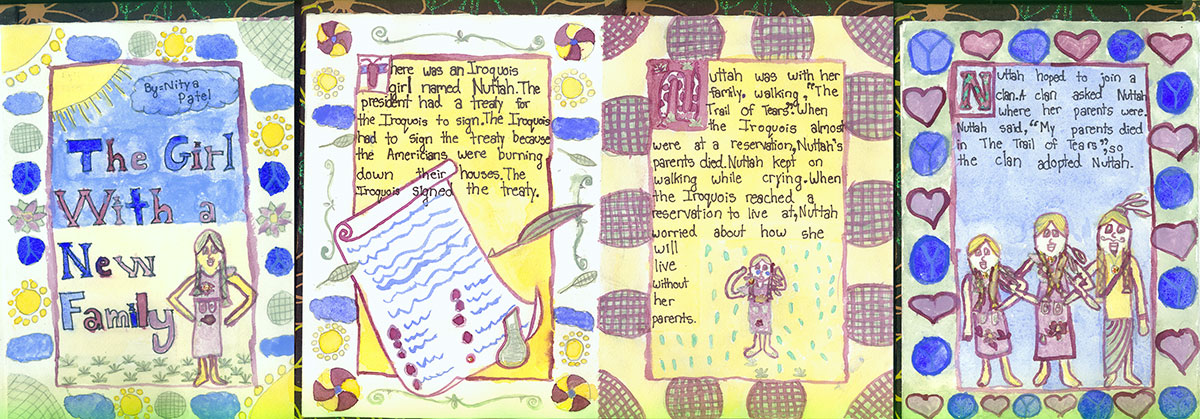 By=Nitya
Patel
The Girl
With a
New
Family
There was an Iroquois
girl named Nuttah. The
president had a treaty for
the Iroquois to sign. The Iroquois
had to sign the treaty because
the Americians were burning
down their houses. The
Iroquois signed the treaty.
Nuttah was with her
family. walking, "The
Trail of Tears". When
the Iroquois almost
were at a reservation, Nuttah's
parents died. Nuttah kept on
walking while crying. When
the Iroquois reached a
reservation to live at, Nuttah
worried about how she
will
live
without
her
parents.
Nuttah hoped to join a
clan. A clan asked Nuttah
where her parents were.
Nuttah said, "My parents died
in The Trail of Tears", so
the clan adopted Nuttah.